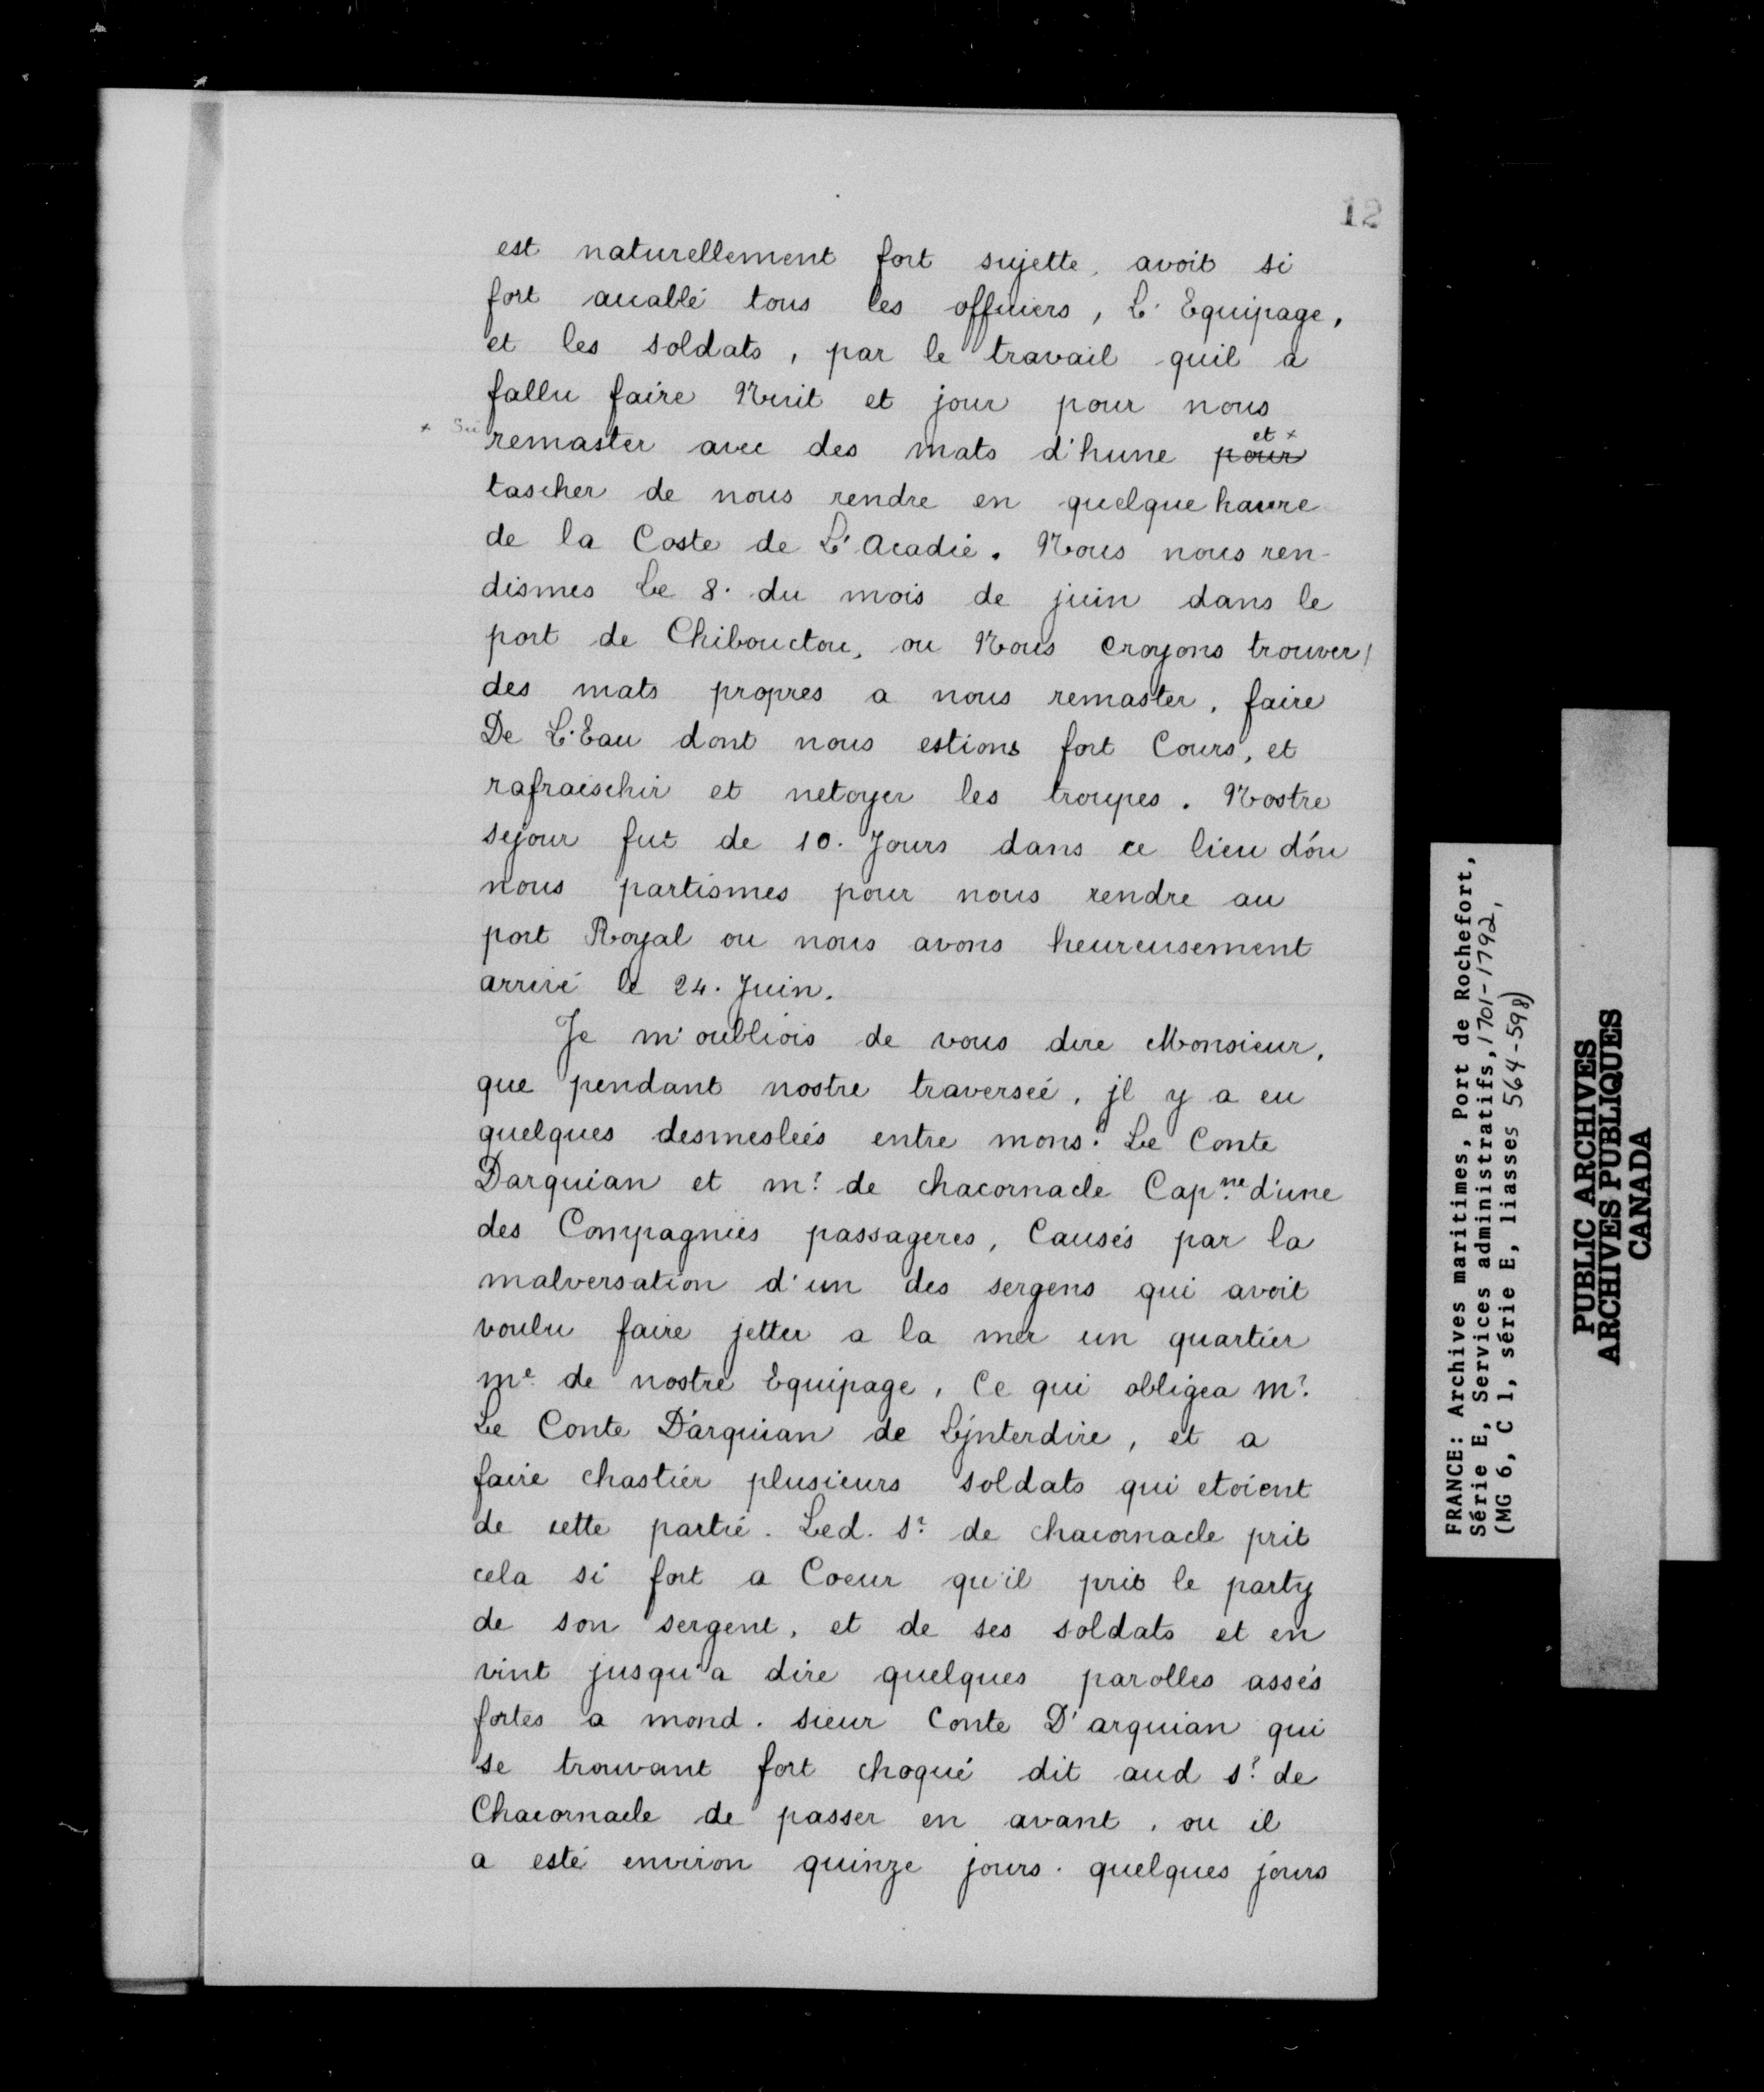 12
est naturellement fort sujette, avoit si
fort accablé tous les officiers, L'Equipage,
et les soldats, par le travail quil a
fallu faire Nuit et jour pour nous
remaster avec des mats d'hune pour et x
x Sic
tascher de nous rendre en quelque havre
de la Coste de L'Acadie. Nous nous ren-
dismes Le 8. du mois de juin dans le
port de Chibouctou, ou Nous croyons trouver
des mats propres a nous remaster, faire
De L'Eau dont nous estions fort Cours, et
rafraischir et netoyer les troupes. Nostre
sejour fut de 10. Jours dans ce lieu d'ou
nous partismes pour nous rendre au
port Royal ou nous avons heureusement
arrivé le 24. Juin.
Je m'oubliois de vous dire Monsieur,
que pendant nostre traverseé, jl y a eu
quelques desmesleés entre mons.r Le Conte
Darquian et m.r de chacornacle Cap.ne d'une
des Compagnies passageres, Causés par la
malversation d'un des sergens qui avoit
voulu faire jetter a la mer un quartier
m.e de nostre Equipage, Ce qui obligea m.r
Le Conte D'arquian de L'jnterdire, et a
faire chastier plusieurs soldats qui etoient
de cette partie. Led. s.r de chacornacle prit
cela si fort a Coeur qu'il prit le party
de son sergent, et de ses soldats et en
vint jusqu'a dire quelques parolles assés
fortes a mond. sieur Conte D'arquian qui
se trouvant fort choqué dit aud s.r de
Chacornacle de passer en avant, ou il
a esté environ quinze jours. quelques jours
FRANCE: Archives maritimes, Port de Rochefort,
Série E, Services administratifs, 1701-1792,
(MG 6, C 1, série E, liasses 564-598)
PUBLIC ARCHIVES
ARCHIVES PUBLIQUES
CANADA